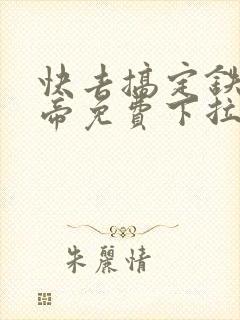 快去搞定鉄
帝免費下拉
朱麗情